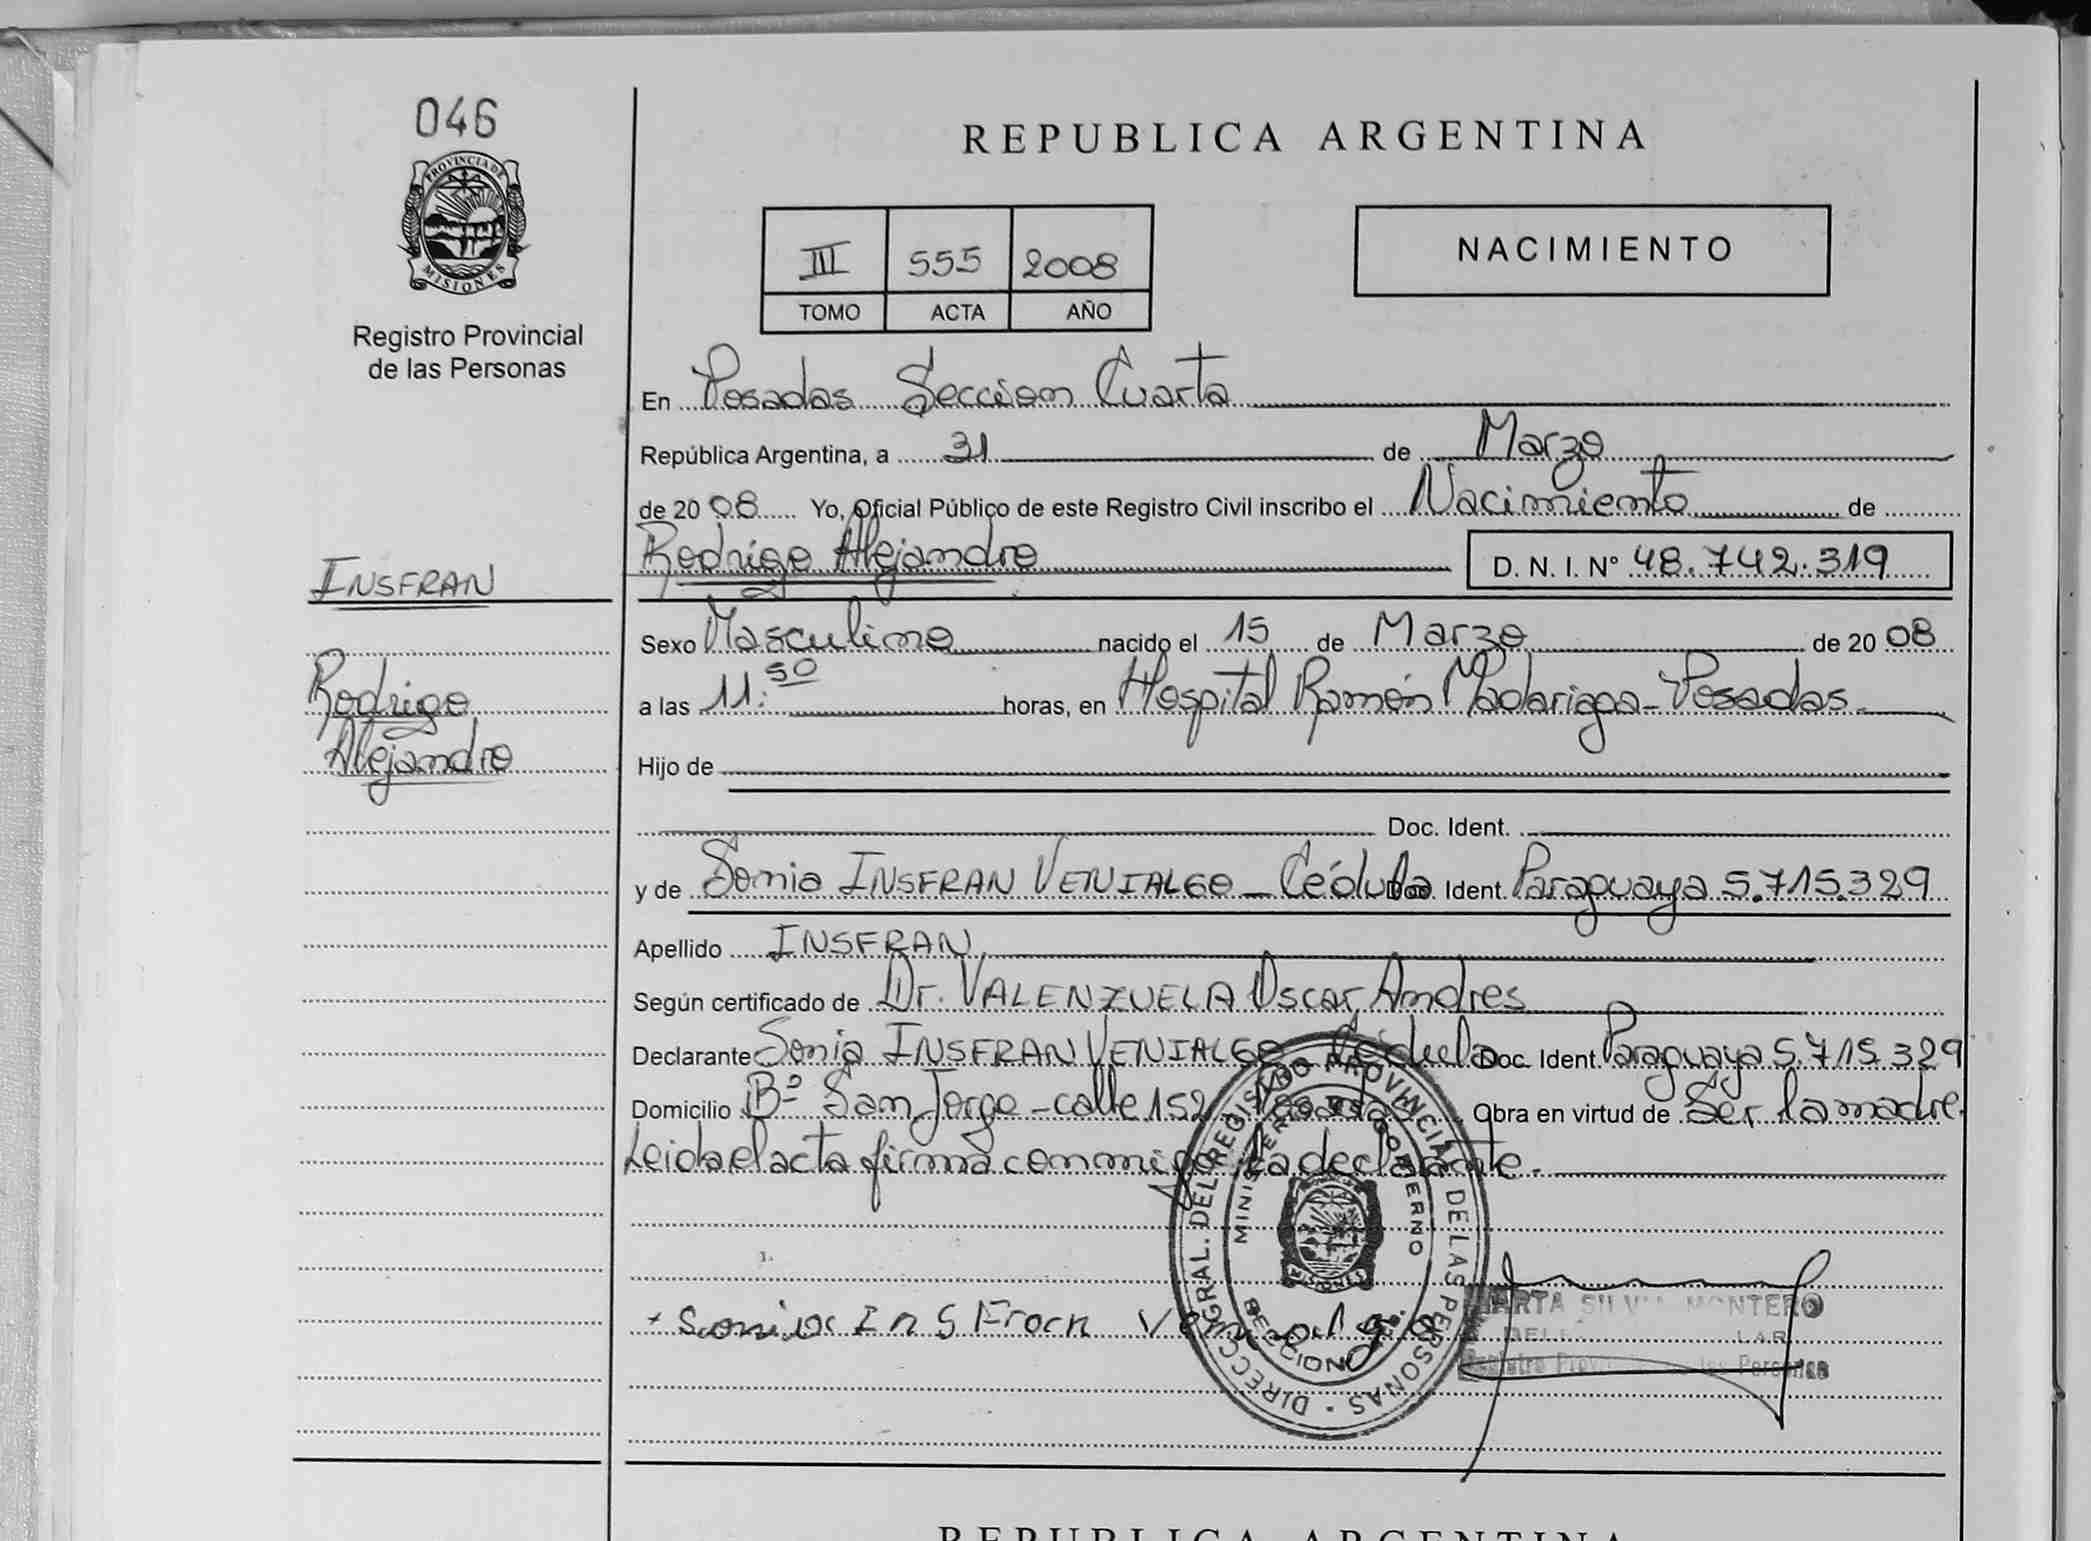 046
PROVINCIA DE
MISIONES
Registro Provincial
de las Personas
REPUBLICA ARGENTINA
III 555 2008
TOMO ACTA AÑO
NACIMIENTO
En Posadas Seccion Cuarta
República Argentina, a 31 de Marzo
de 20 08 Yo, Oficial Público de este Registro Civil inscribo el Nacimiento de
Rodrigo Alejandro D. N. I. Nº 48.742.319
INSFRAN
Rodrigo
Alejandro
Sexo Masculino nacido el 15 de Marzo de 20 08
a las 11:50 horas, en Hospital Ramón Madariaga - Posadas
Hijo de
Doc. Ident.
y de Sonia INSFRAN VENIALGO - Cédula Doc. Ident. Paraguaya 5.715.329
Apellido INSFRAN
Según certificado de Dr. VALENZUELA Oscar Andres
Declarante Sonia INSFRAN VENIALGO Cédula Doc. Ident. Paraguaya 5.715.329
Domicilio Bº San Jorge - calle 152 - Posadas Obra en virtud de Ser la madre
Leida el acta firma conmigo la declarante.
DIRECC. GRAL. DEL REGISTRO PROVINCIAL DE LAS PERSONAS
MINISTERIO DE GOBIERNO
MISIONES
Sonia Insfran
MONTERO
Registro las Personas
REPUBLICA ARGENTINA